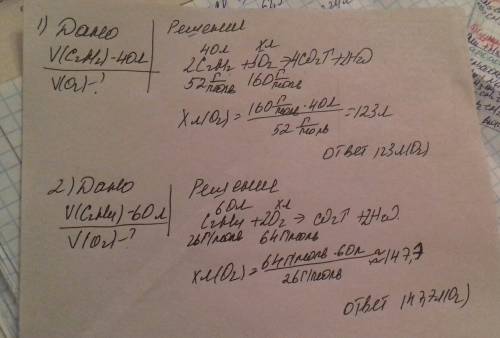 1) Дано
Решение
V(C2H2)-40л
V(O2)-?
40л хл
2C2H2+5O2→4CO2↑+2H2O
52 г/моль 160 г/моль
Xл(O2)= 160 г/моль · 40л / 52 г/моль =123л
Ответ 123л(O2)
2) Дано
Решение
V(C2H4)-60л
V(O2)-?
60л хл
C2H4+2O2→CO2↑+2H2O
26г/моль 64г/моль
Xл(O2)= 64г/моль · 60л / 26г/моль ≈147,7
Ответ 147,7л(O2)